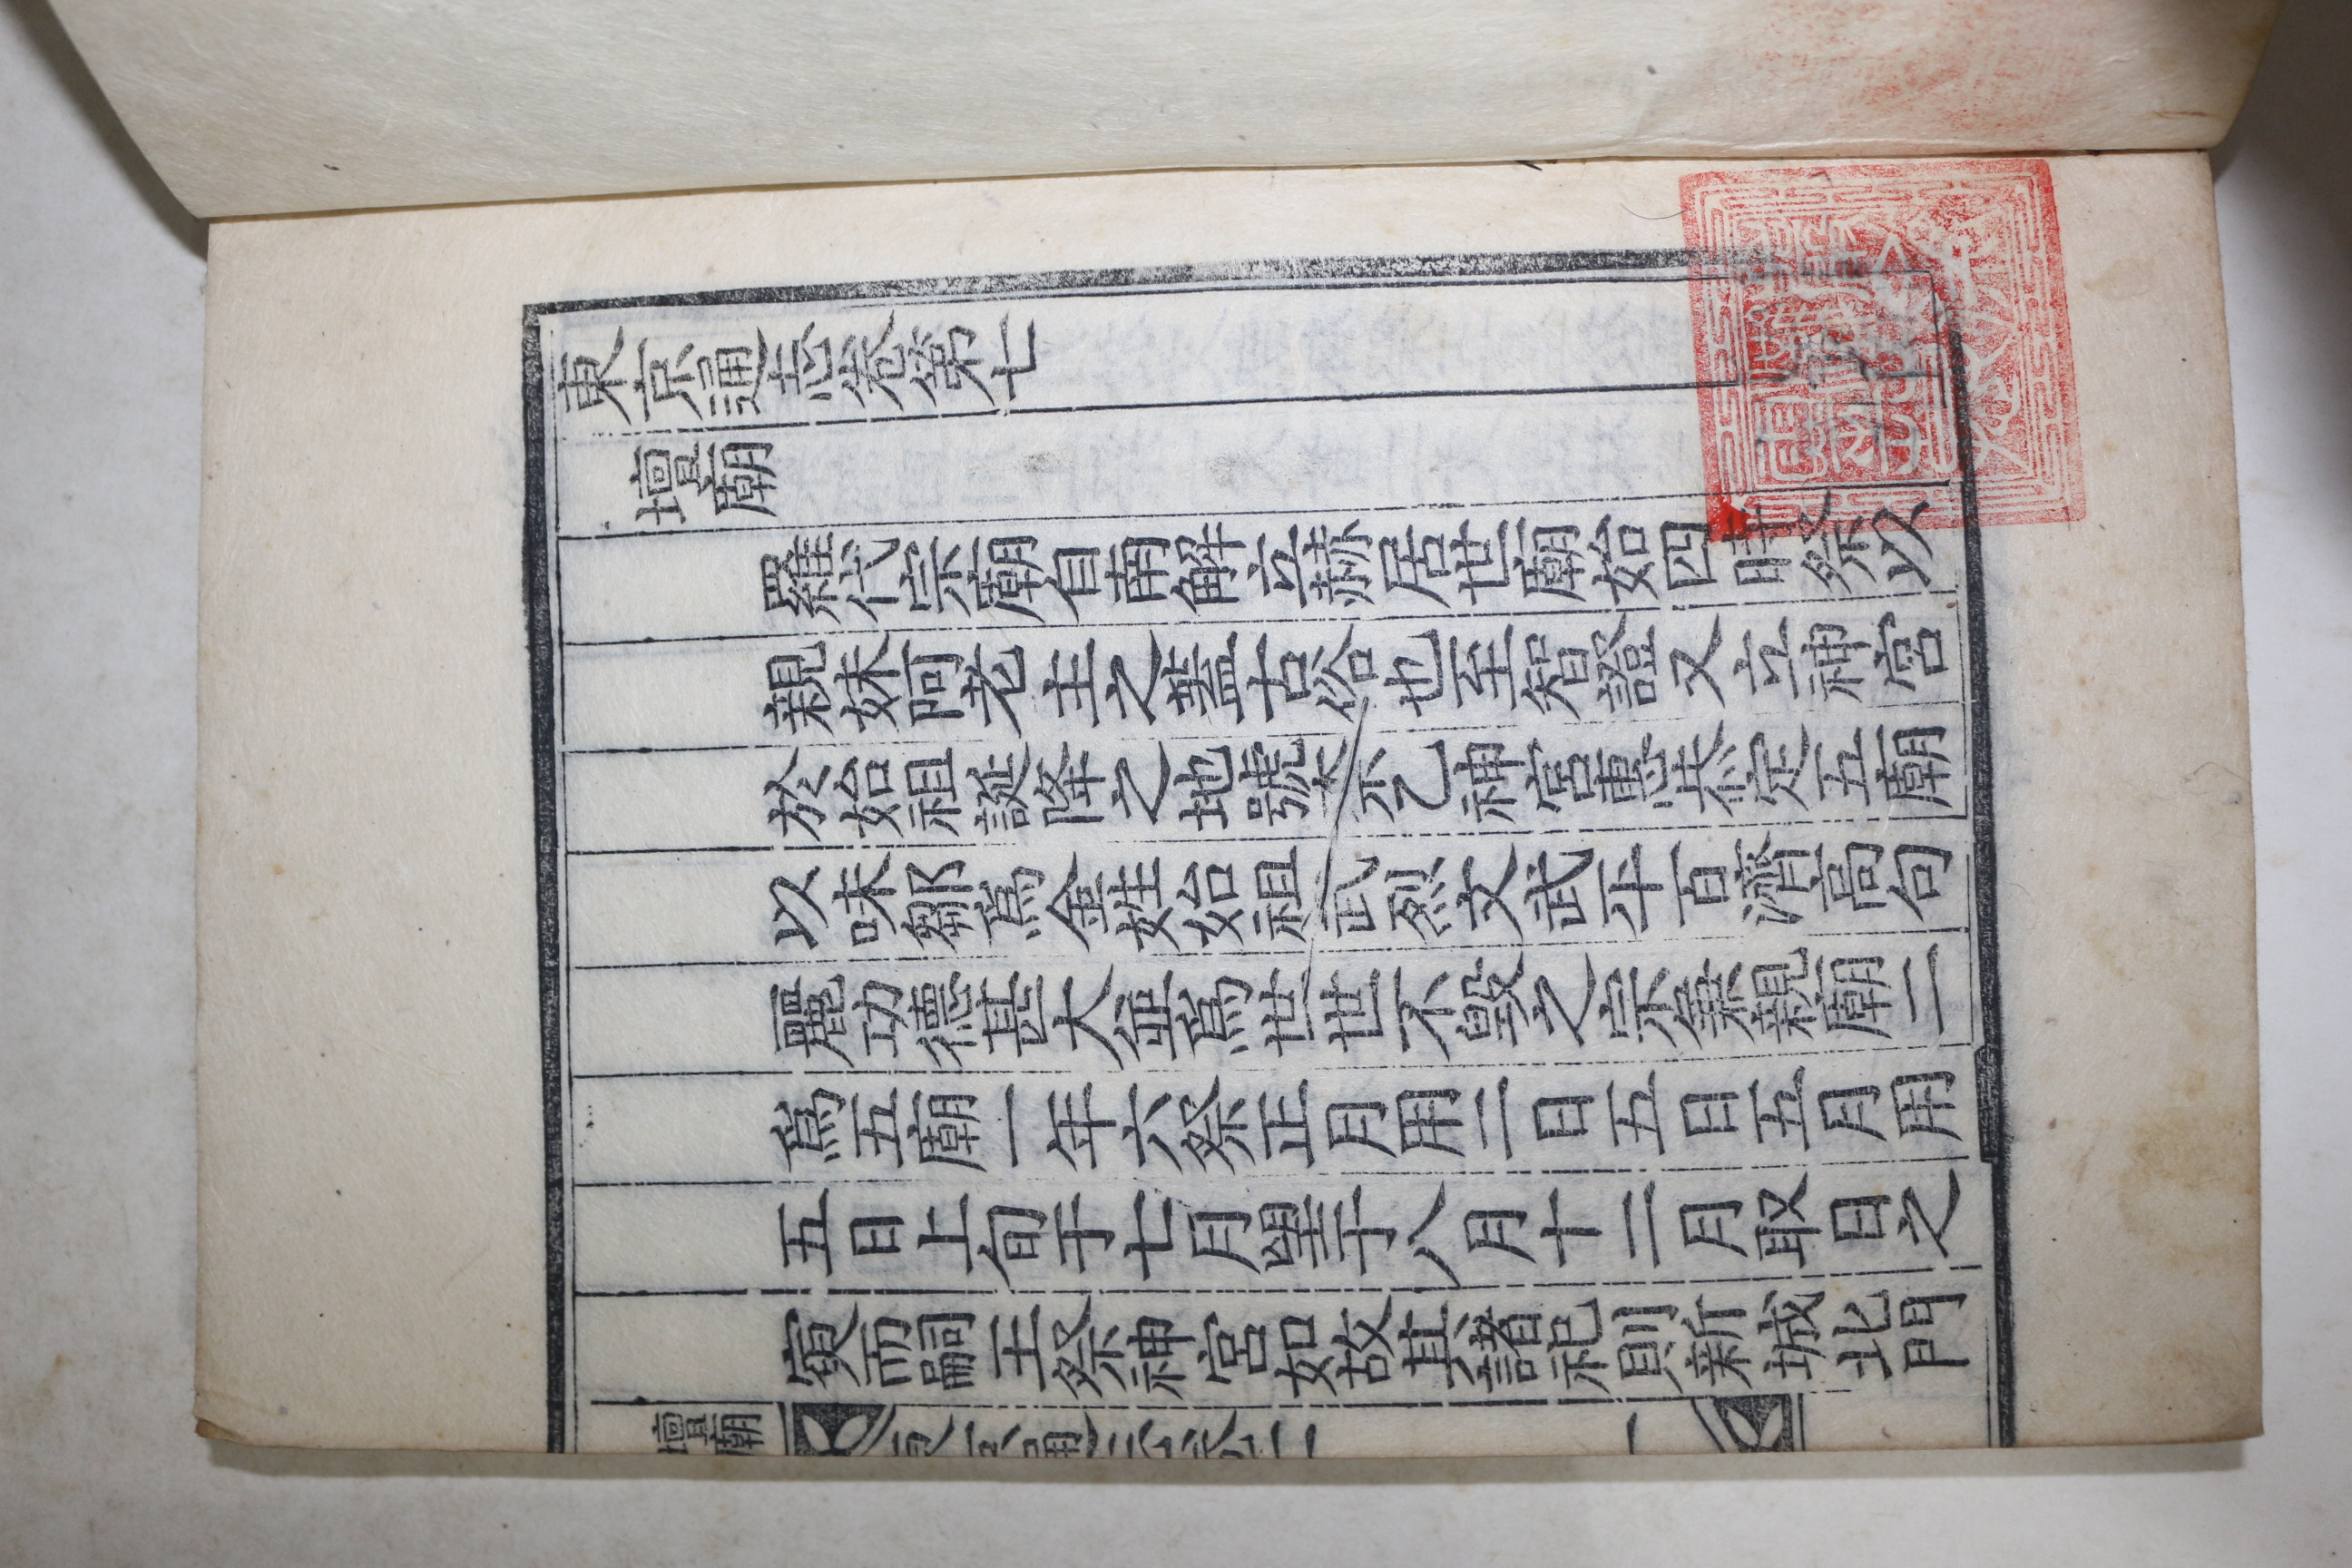 東京通志卷第七
壇廟
羅代宗廟自南解立赫居世廟始四時祭以
親妹阿老主之蓋古俗也至智證又立神宮
於始祖誕降之地號柰乙神宮惠恭定五廟
以味鄒爲金姓始祖武烈文武平百濟高句
麗功德甚大並爲世世不毁之宗兼親廟二
爲五廟一年六祭正月用二日五日五月用
五日上旬于七月望于八月十二月取日之
寅而嗣王祭神宮如故其諸祀則新城北門
壇廟
東京通志卷
一